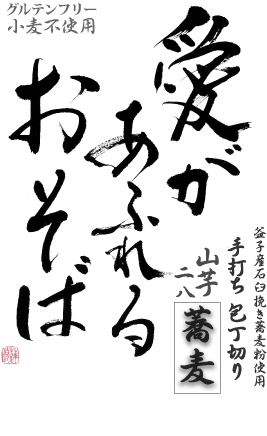 グルテンフリー
小麦不使用
愛が
あふれる
おそば
益子産石臼挽き蕎麦粉使用
手打ち 包丁切り
山芋
二八
蕎麦